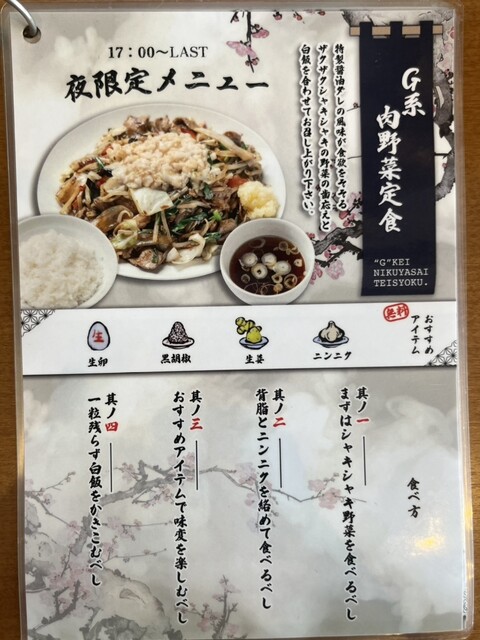 17：00～LAST
夜限定メニュー
G系
肉野菜定食
"G"KEI
NIKUYASAI
TEISYOKU.
特製醤油ダレの風味が食欲をそそる
ザクザクシャキシャキの野菜の歯応えと
白飯を合わせてお召し上がり下さい。
おすすめ
アイテム
無料
生
生卵
黒胡椒
生姜
ニンニク
食べ方
其ノ一
まずはシャキシャキ野菜を食べるべし
其ノ二
背脂とニンニクを絡めて食べるべし
其ノ三
おすすめアイテムで味変を楽しむべし
其ノ四
一粒残らず白飯をかきこむべし